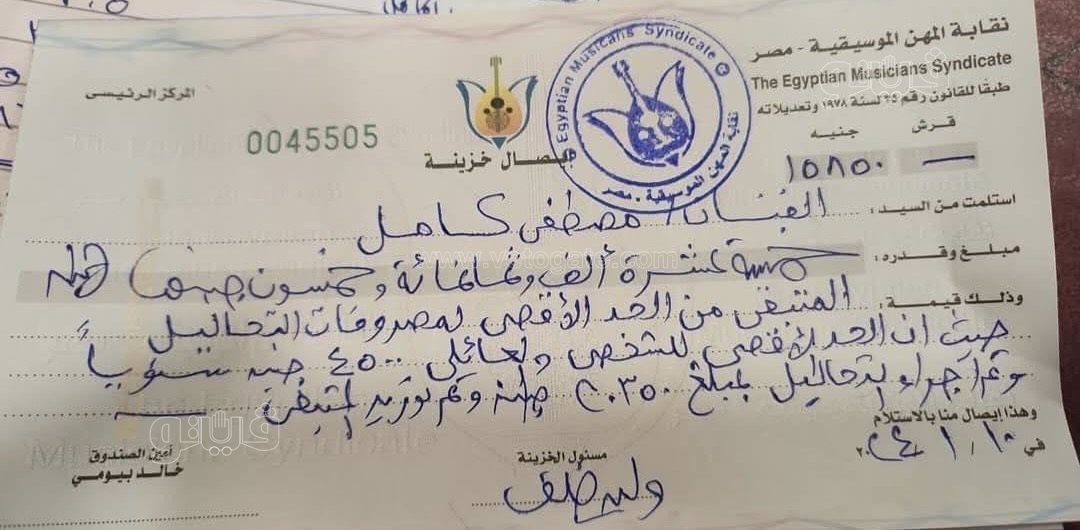 نقابة المهن الموسيقية - مصر
The Egyptian Musicians Syndicate
طبقًا للقانون رقم ٣٥ لسنة ١٩٧٨ وتعديلاته
المركز الرئيسى
0045505
إيصال خزينة
قرش جنيه
١٥٨٥٠
Egyptian Musicians Syndicate
نقابة المهن الموسيقية - مصر
استلمت من السيد : الفنان / مصطفى كامل
مبلغ وقدره : خمسة عشرة ألف وثمانمائة وخمسون جنيها
وذلك قيمة : المتبقى من الحد الأقصى لمصروفات التحاليل
حيث ان الحد الأقصى للشخصى والعائلى ٤٥٠٠ جنيه سنوياً
وتم اجراء تحاليل بمبلغ ٢٠٣٥٠ جنيه وتم توريد المتبقى
وهذا إيصال منا بالاستلام
في ١٠ / ١ / ٢٠٢٤
مسئول الخزينة
وليد خلف
أمين الصندوق
خالد بيومي
فيتو
www.vetogate.com